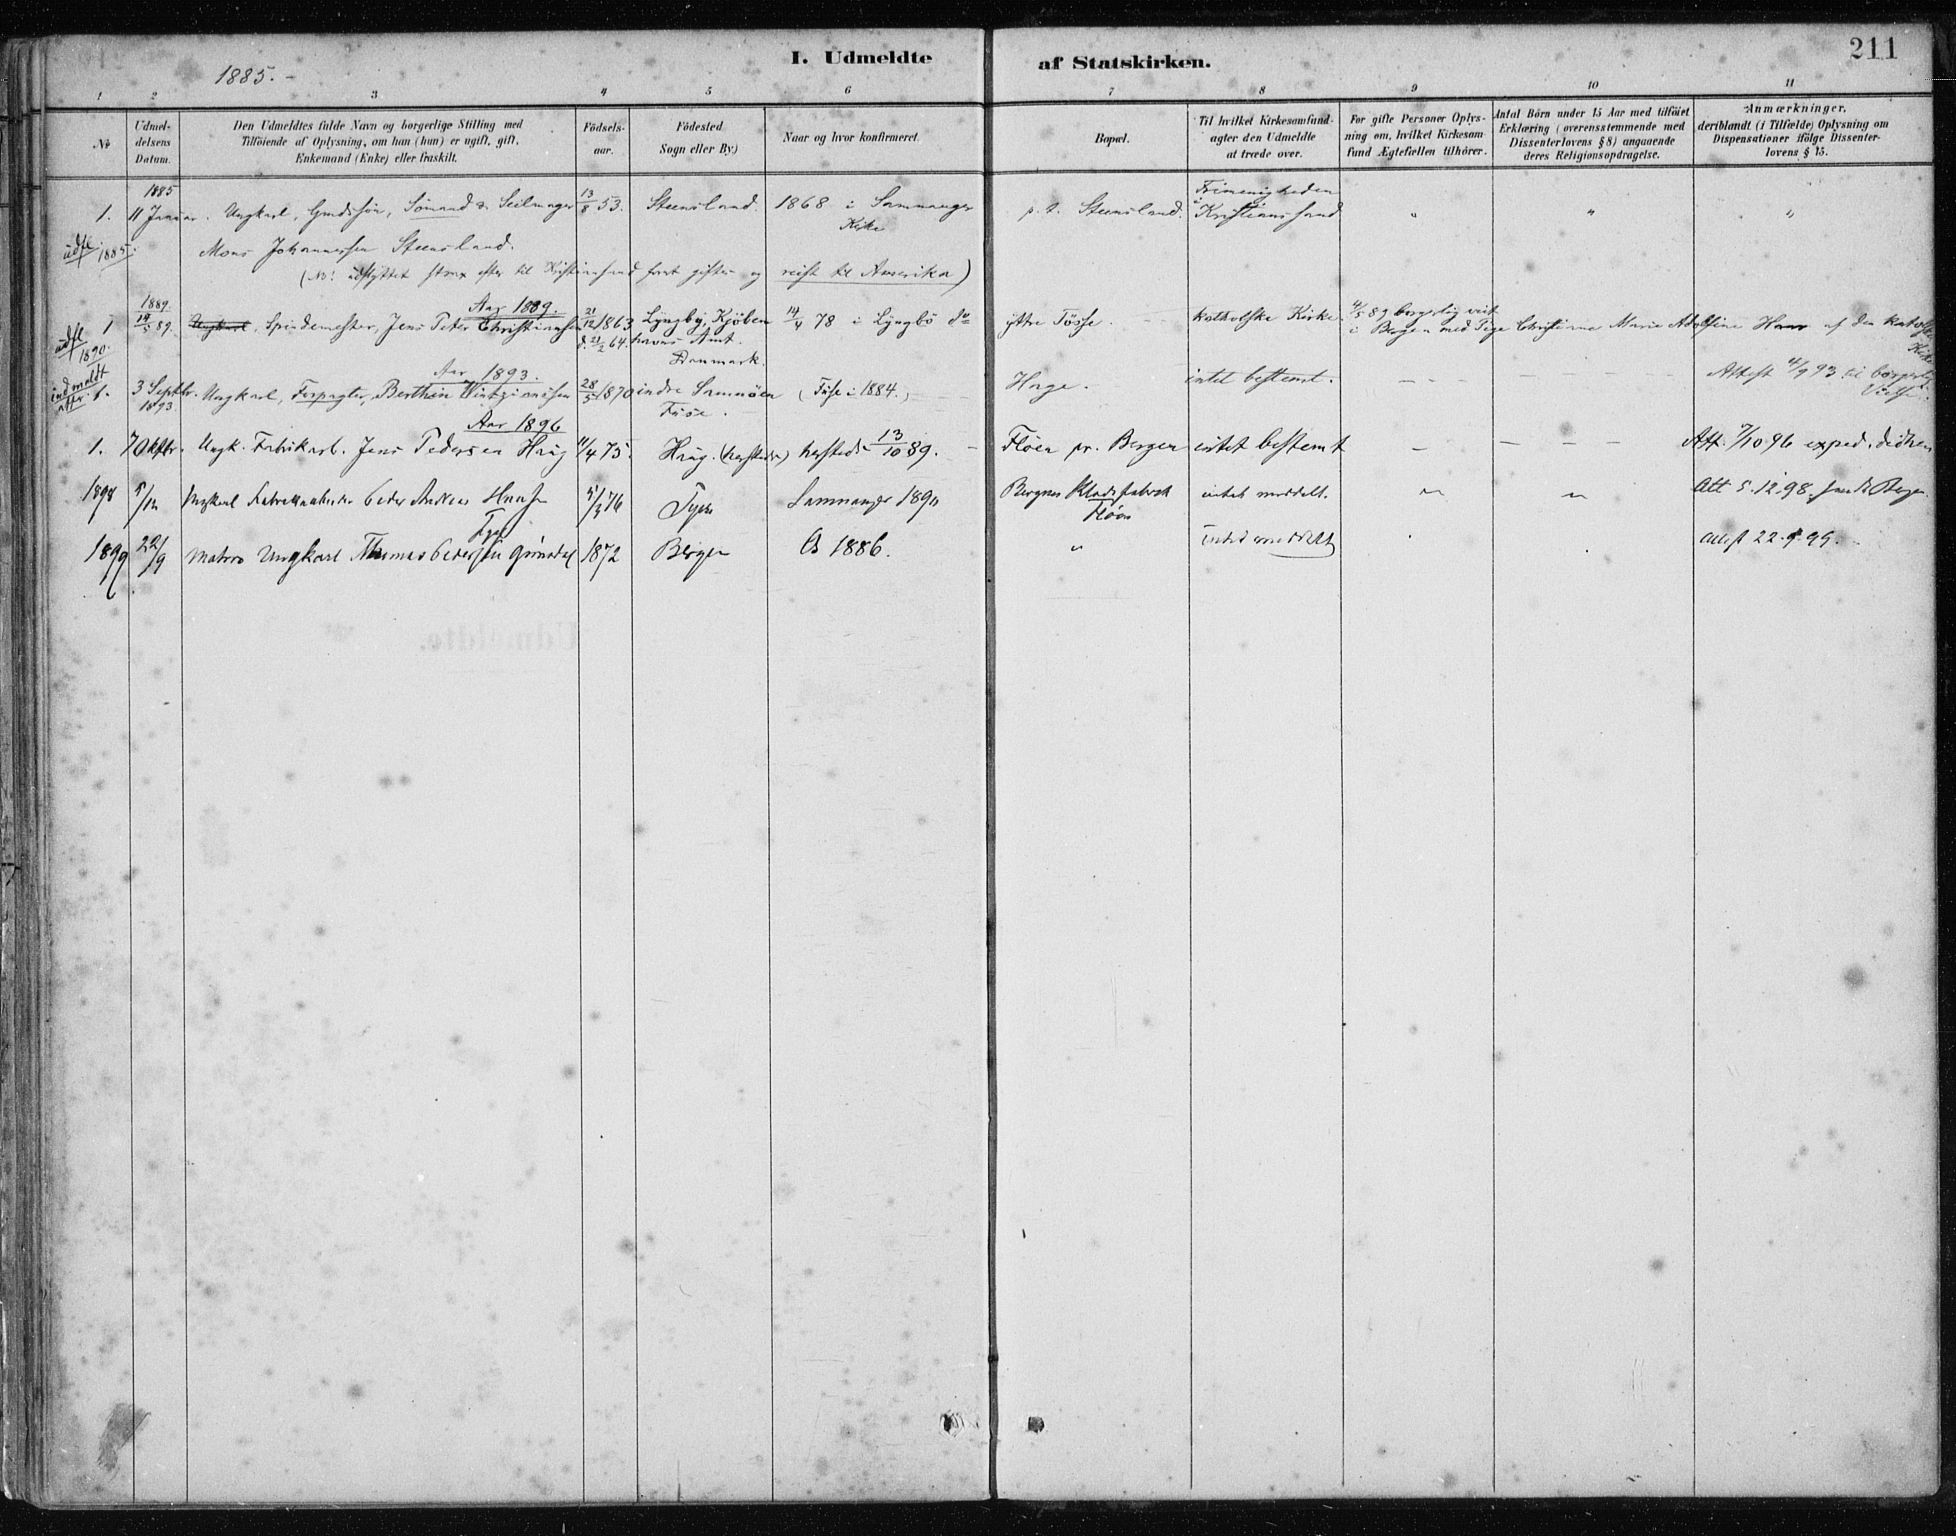 I. Udmeldte af Statskirken.
211
1885.
1 2 3 4 5 6 7 8 9 10 11
No
Udmeldelsens Datum.
Den Udmeldtes fulde Navn og borgerlige Stilling med
Tilföiende af Oplysning, om han (hun) er ugift, gift,
Enkemand (Enke) eller fraskilt.
Födselsaar.
Födested
Sogn eller By)
Naar og hvor konfirmeret
Bopæl.
Til hvilket Kirkesamfund-
agter den Udmeldte
at træde over.
For gifte Personer Oplys-
ning om, hvilket Kirkesam-
fund Ægtefællen tilhörer.
Antal Börn under 15 Aar med tilföiet
Erklæring (overensstemmende med
Dissenterlovens § 8) angaaende
deres Religionsopdragelse.
Anmærkninger,
deriblandt (i Tilfælde) Oplysning om
Dispensationer ifölge Dissenter-
lovens § 15.
1885
1. 11 Januar. Ungkarl, Gmdssön, Sömand & Seilmager 13/8 53. Steensland. 1868 i Samnanger Kirke p. t. Steensland. Frimenigheden i Kristianssand " " "
udfl. 1885.
Mons Johannessen Steensland.
(NB! udflyttet strax efter til Kristianssand samt gifter og reist til Amerika)
Aar 1889.
1 1889. 14/5 89. Ungkarl, Spindemester, Jens Peter Christiansen 21/12 1863 d. 21/2 64. Lÿngbÿ, Kjöbenhavns Amt. Danmark. 14/4 78 i Lÿngbÿ ÿttre Tösse. katholske Kirke 4/5 89 borgerlig viet
i Bergen med Pige Christiane Marie Adolfine af den katolske Kirke
udfl. 1890.
Aar 1893.
indmeldt atter
1. 3 Septbr. 1893. Ungkarl, Forpagter, Berthin 28/5 1870 indre Samnöen Fuse. (Fuse i 1884.) Hage. intet bestemt. — — — Attest 4/9 93 til borgerlig Vielse.
Aar 1896
1. 7 Oktbr. Ungk. Fabrikarb. Jens Pedersen Haug 11/4 75. Haug. (herstedes) herstedes 13/10 89. Flöen pr. Bergen intet bestemt — — — Att. 7/10 96 exped.
1898 5/12 Ungkarl Fabrikarbeider Peder Andreas Hansen Tysse 5/3 76 Tysse Samnanger 1890 Bergens Klædefabrik Flöen intet meddelt. " " Att 5.12.98 sendt Bergen.
1899 22/9 Matros Ungkarl Thomas Pedersen Grimdal 1872 Bergen Os 1886. " intet meddelt . . Attest 22.9.99.